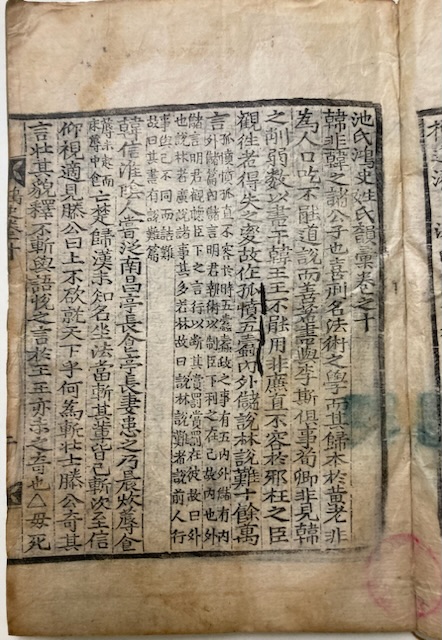 池氏鴻史姓氏韻彙卷之十
韓非韓之諸公子也喜刑名法術之學而其歸本於黃老非
為人口吃不能道說而善著書與李斯俱事荀卿非見韓
之削弱數以書干韓王王不能用非廉直不容於邪枉之臣
觀往者得失之變故作孤憤五蠹內外儲說林說難十餘萬
言
孤憤憤孤直不容於時五蠹蠹政之事有五內外儲有內
外儲篇內儲言明君執術以制臣下刑之在己故內也外
儲言明君觀聽臣下之言行以斷其賞罰賞罰在彼故曰外
也說林若廣說諸事其多若林故曰說林說難者說前人行
事與己不同而詰難
故曰其書有說難篇
韓信淮陰人嘗泛南昌亭長食亭長妻患之乃晨炊蓐食
蓐未起而
床蓐中食
亡楚歸漢未知名坐法當斬其輩皆已斬次至信
仰視適見滕公曰上不欲就天下乎何為斬壮士滕公奇其
言壯其貌釋不斬與語悅之言於王王亦未之奇也△毋死